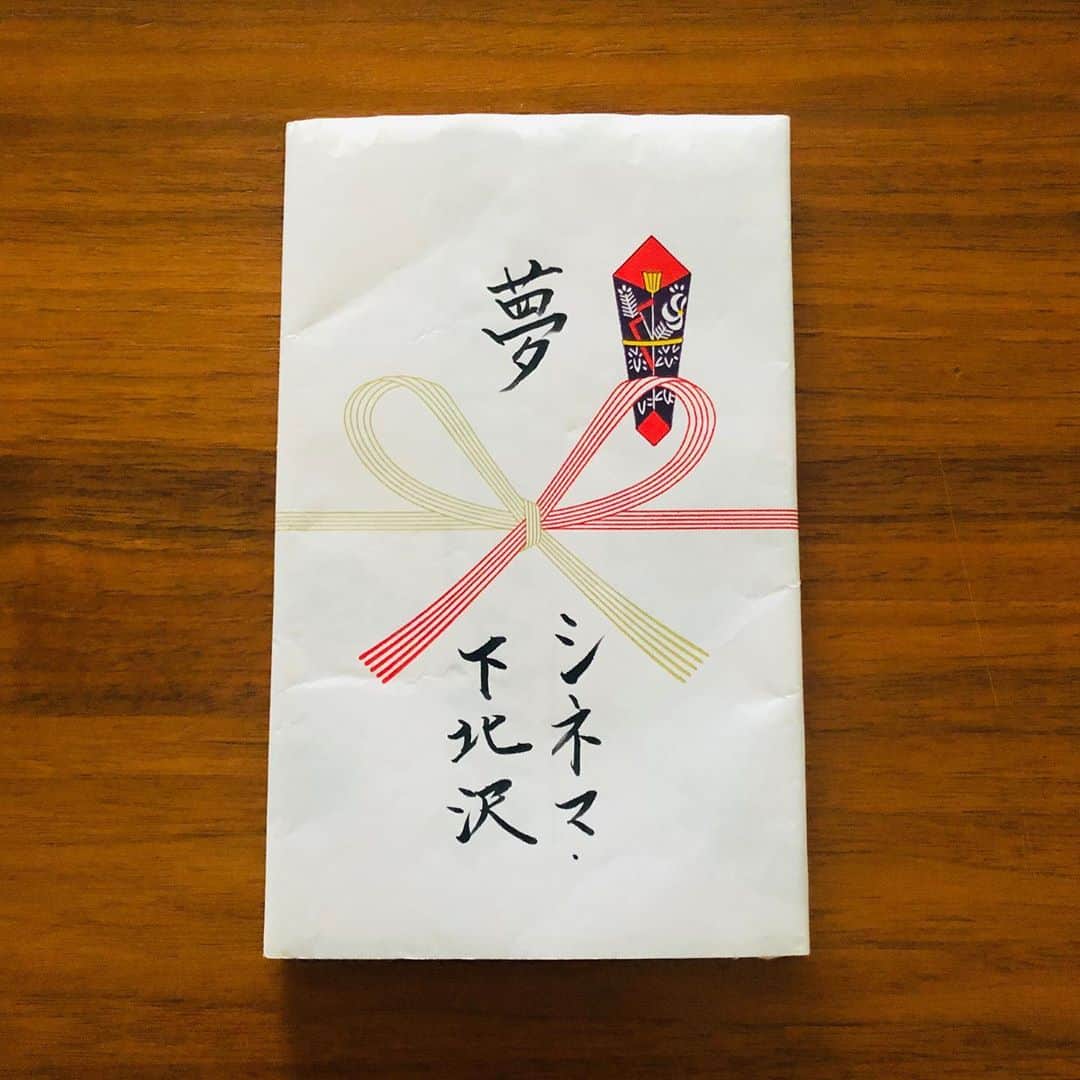 夢
シネマ・
下北沢